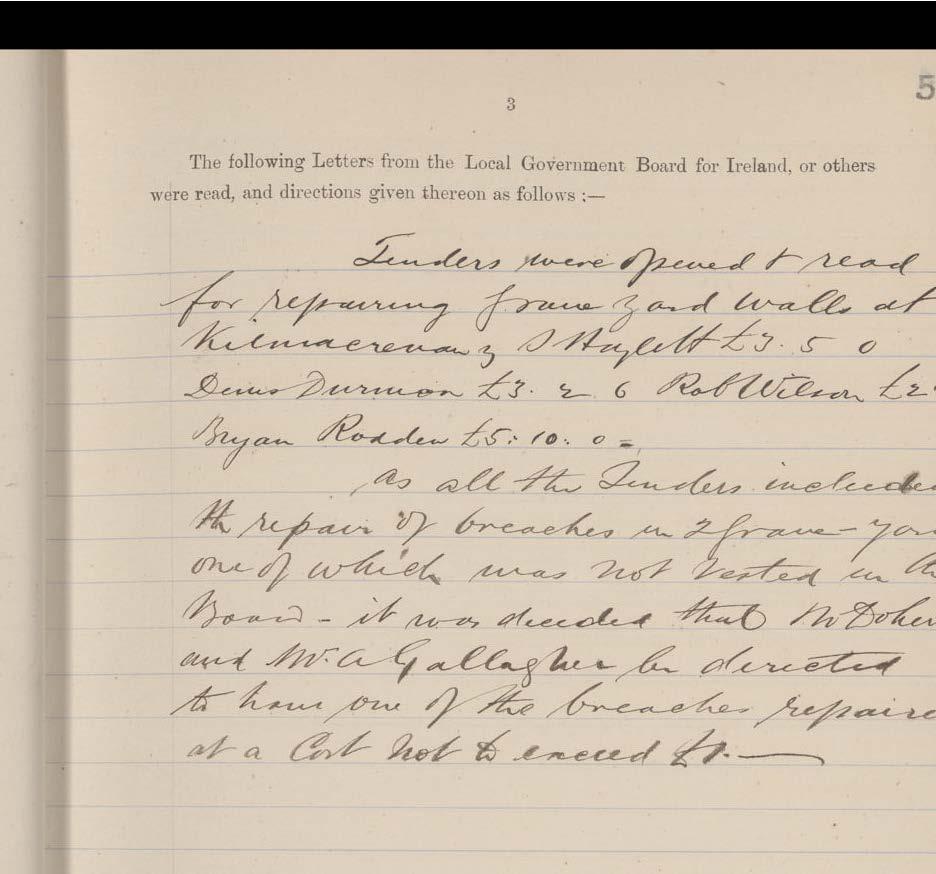 5
3
The following Letters from the Local Government Board for Ireland, or others
were read, and directions given thereon as follows :—
Tenders were opened & read
for repairing grave yard walls at
Kilmacrenan £3. 5 0
Denis Durnion £3. 2 6 Rob Wilson £2
Bryan Rodden £5: 10: 0 =
as all the Tenders included
the repair of breaches in 2 grave-yar
one of which was not vested in th
Board - it was decided that Mr Doher
and Mr. A Gallagher be directed
to have one of the breaches repaire
at a Cost not to exceed £1. —